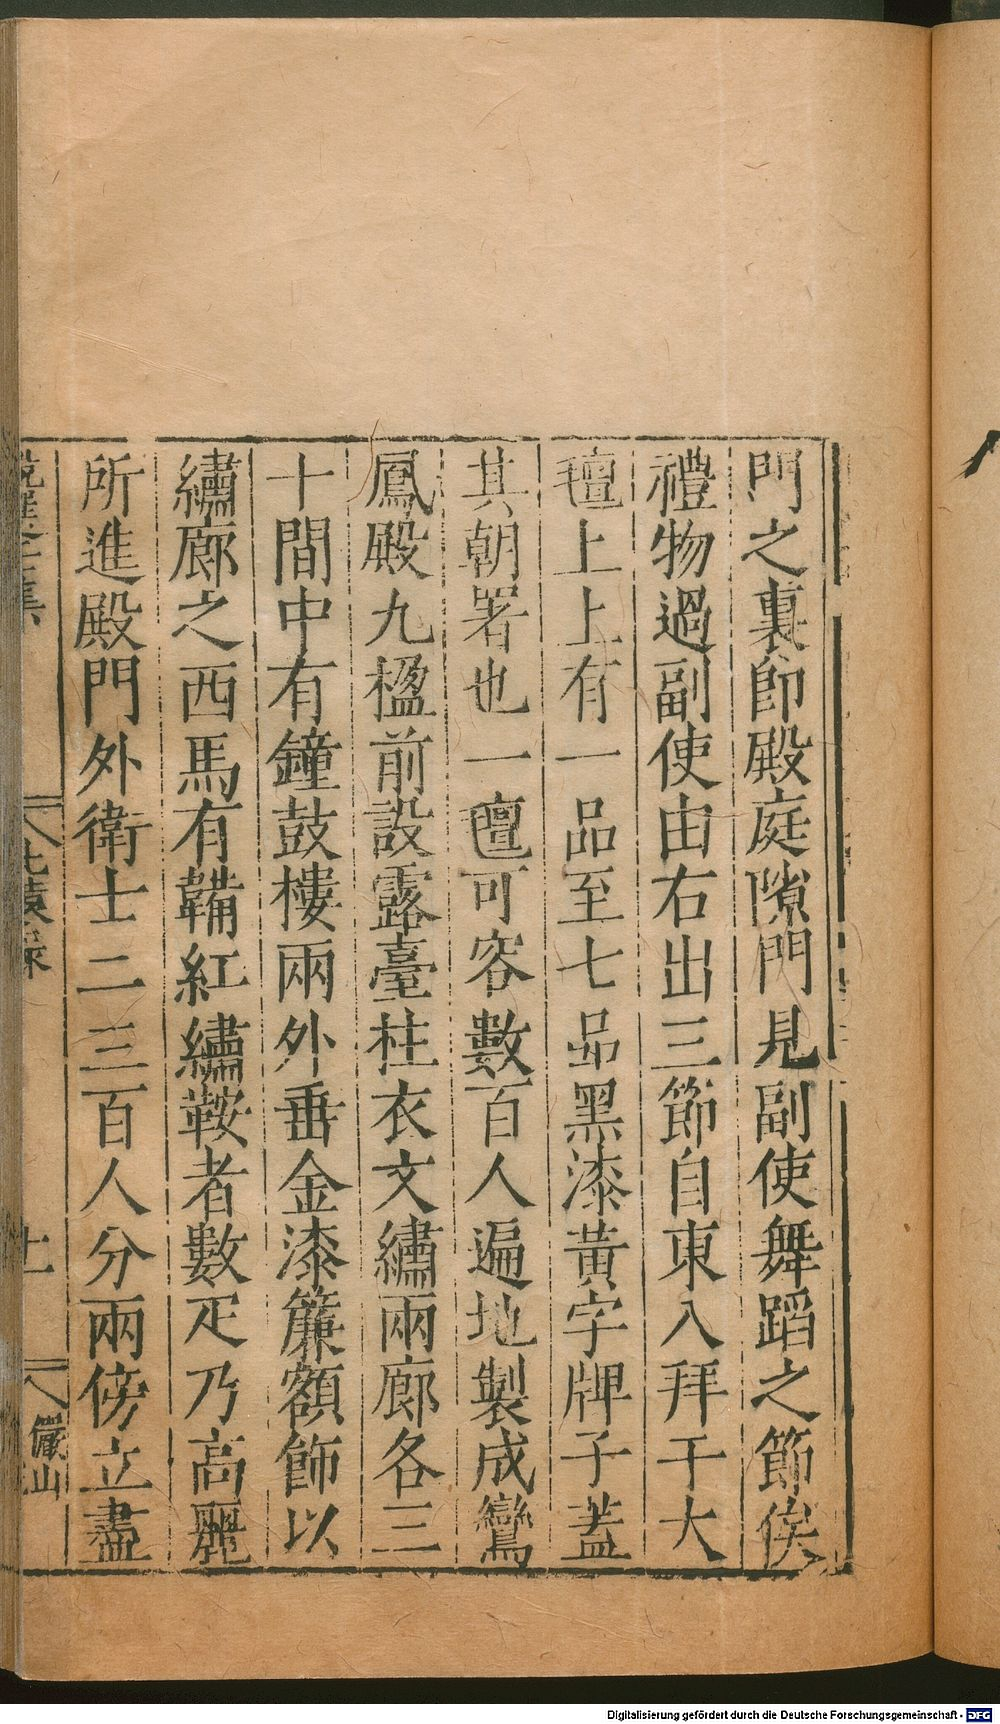 門之裏卽殿庭隙門見副使舞蹈之節俟
禮物過副使由右出三節自東入拜于大
氊上上有一品至七品黑漆黃字牌子蓋
其朝署也一氊可容數百人遍地製成鸞
鳳殿九楹前設露臺柱衣文繡兩廊各三
十間中有鐘鼓樓兩外垂金漆簾額飾以
繡廊之西馬有韉紅繡鞍者數疋乃高麗
所進殿門外衛士二三百人分兩傍立盡
北轅錄
十一
儼山
Digitalisierung gefördert durch die Deutsche Forschungsgemeinschaft - DFG